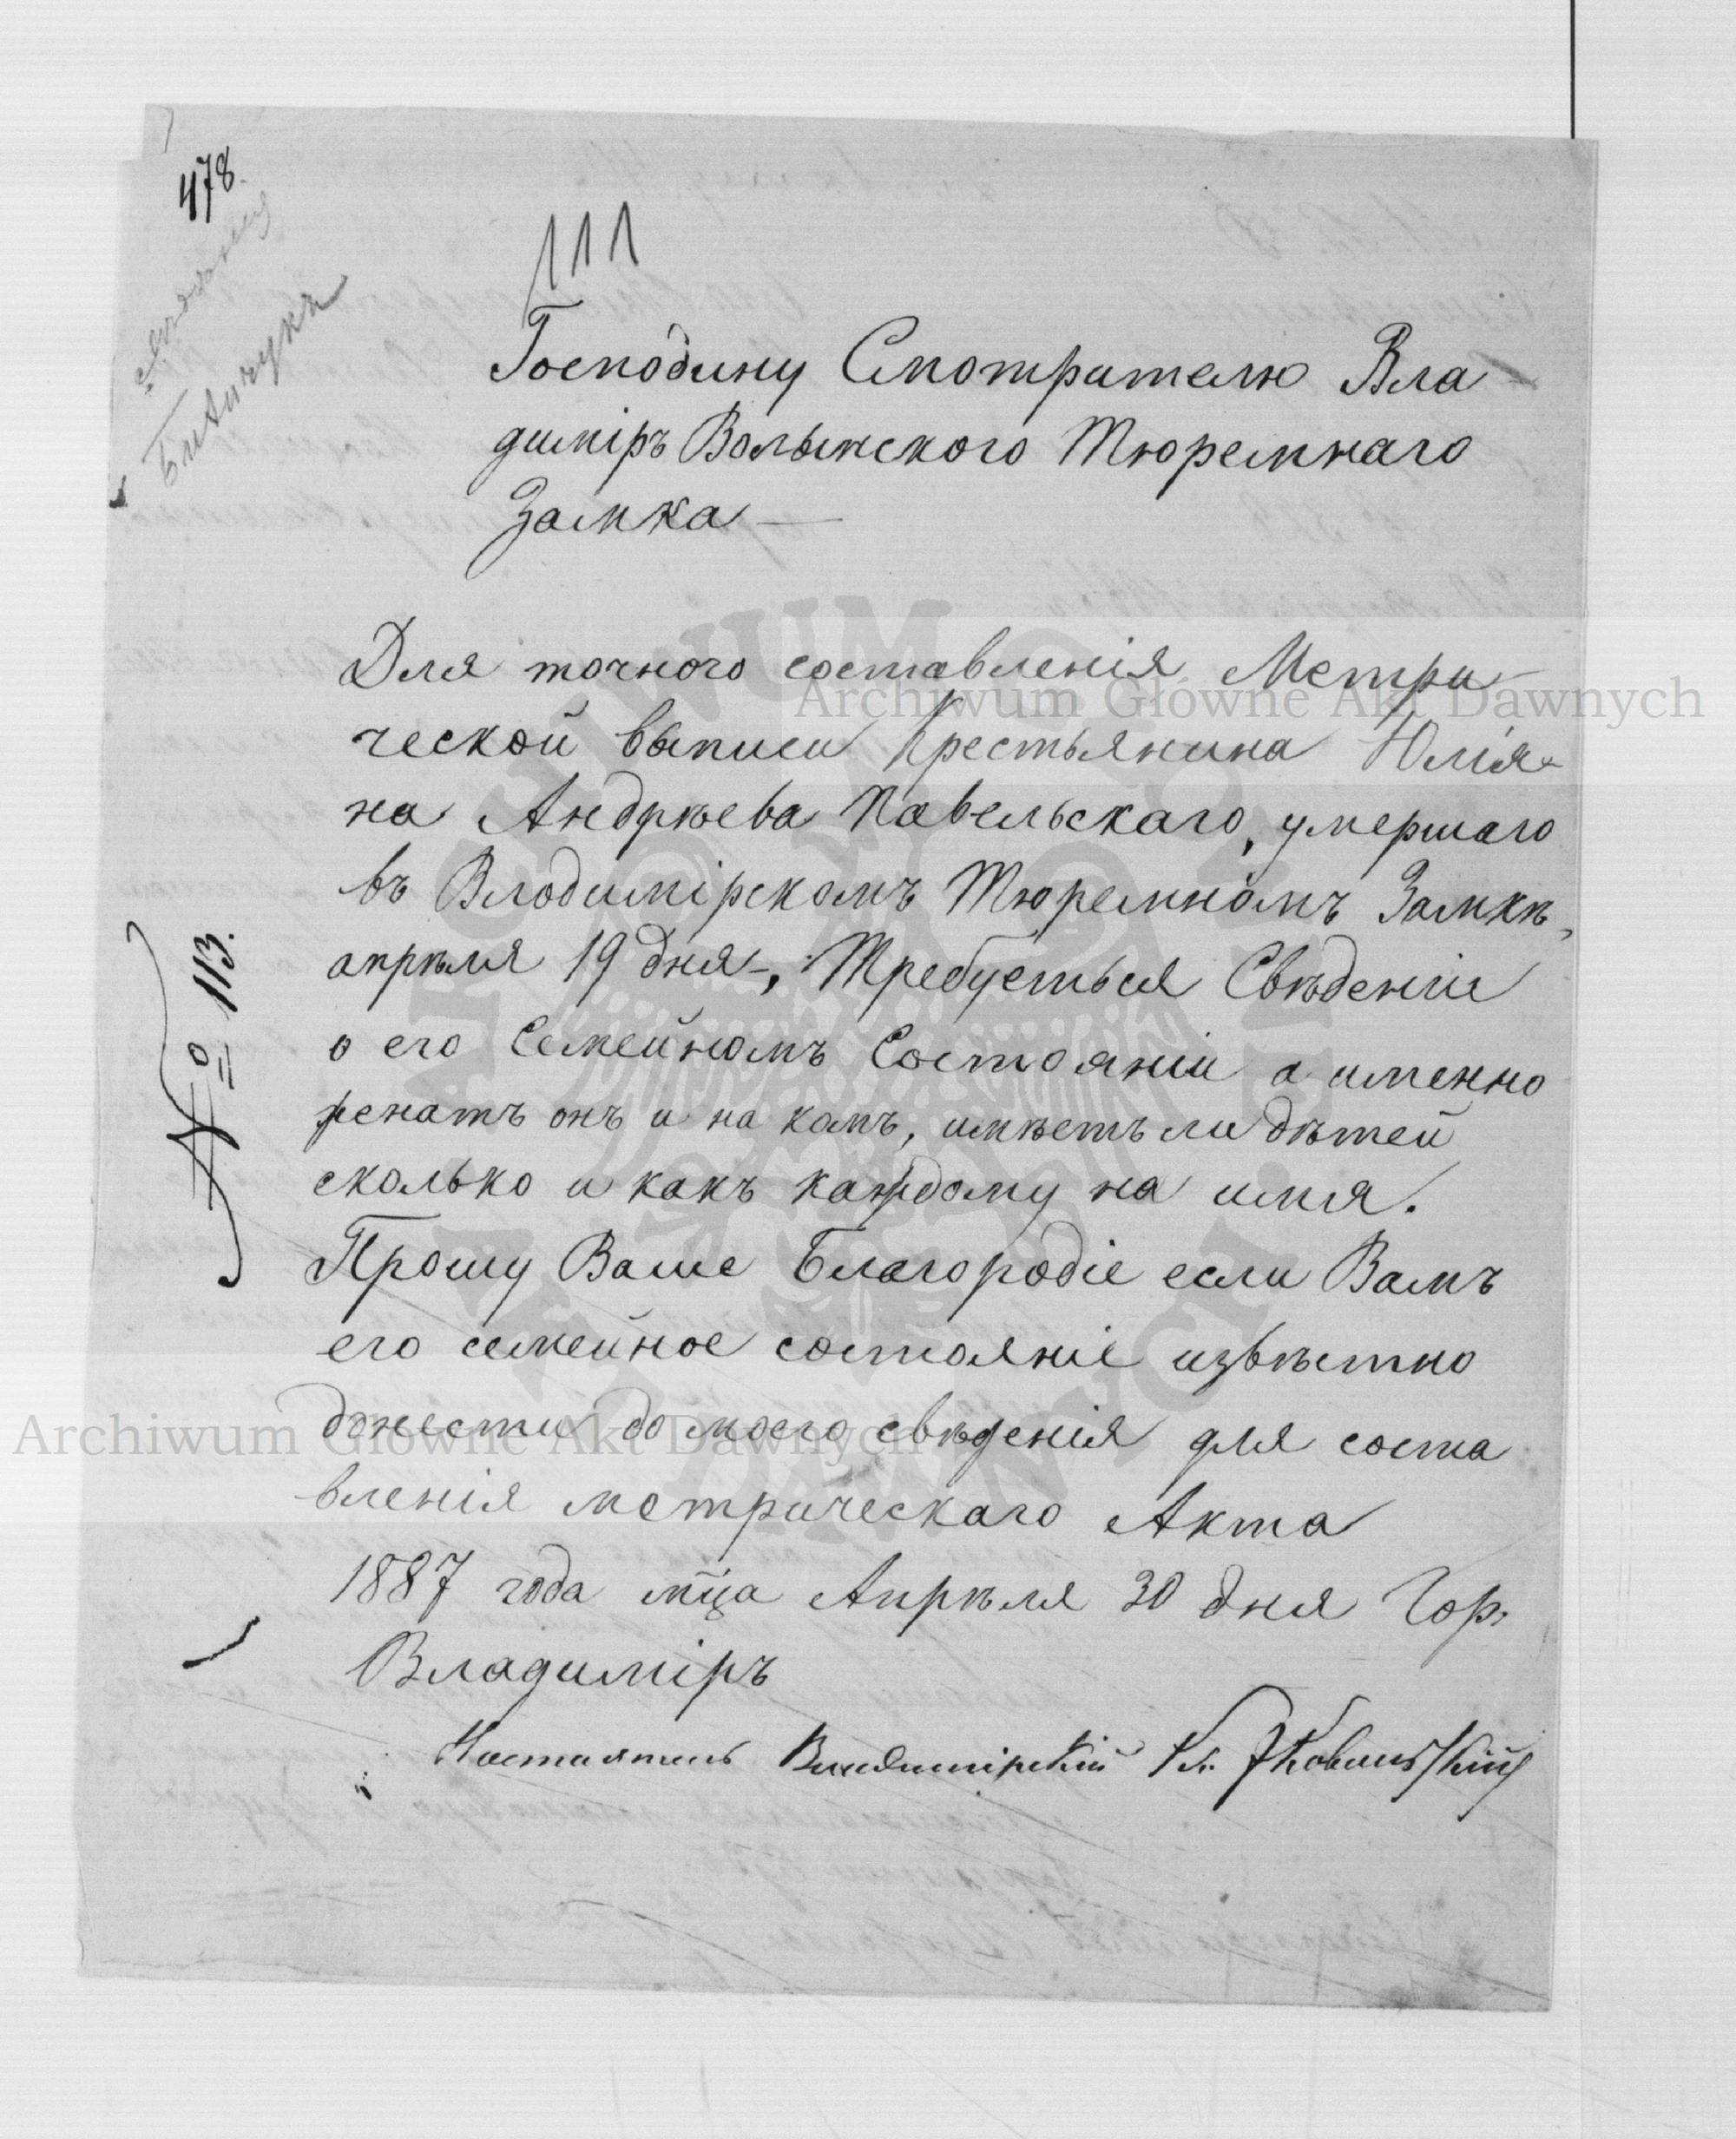 478.
111
Господину Смотрителю Вла
димірь Волынского Тюремнаго
Замка —
Для точного составленія Метри
ческой выписи Крестьянина Юлія-
на Андрѣева Павельскаго, умершаго
въ Влодимірскомъ Тюремномъ Замкѣ,
апрѣля 19 дня, Требуеться Свѣденіи
о его Семейномъ Состояніи а именно
женатъ онъ и на комъ, имѣетъ ли дѣтей
сколько и какъ каждому на имя.
Прошу Ваше Благородіе если Вамъ
его семейное состояніе извѣстно
донести до моего свѣденія для соста
вленія метрическаго Акта
1887 года мца Апрѣля 30 дня Гор.
Владиміръ
Настоятель Владимірскій Кс.
№ 113.
Archiwum Główne Akt Dawnych
Archiwum Główne Akt Dawnych